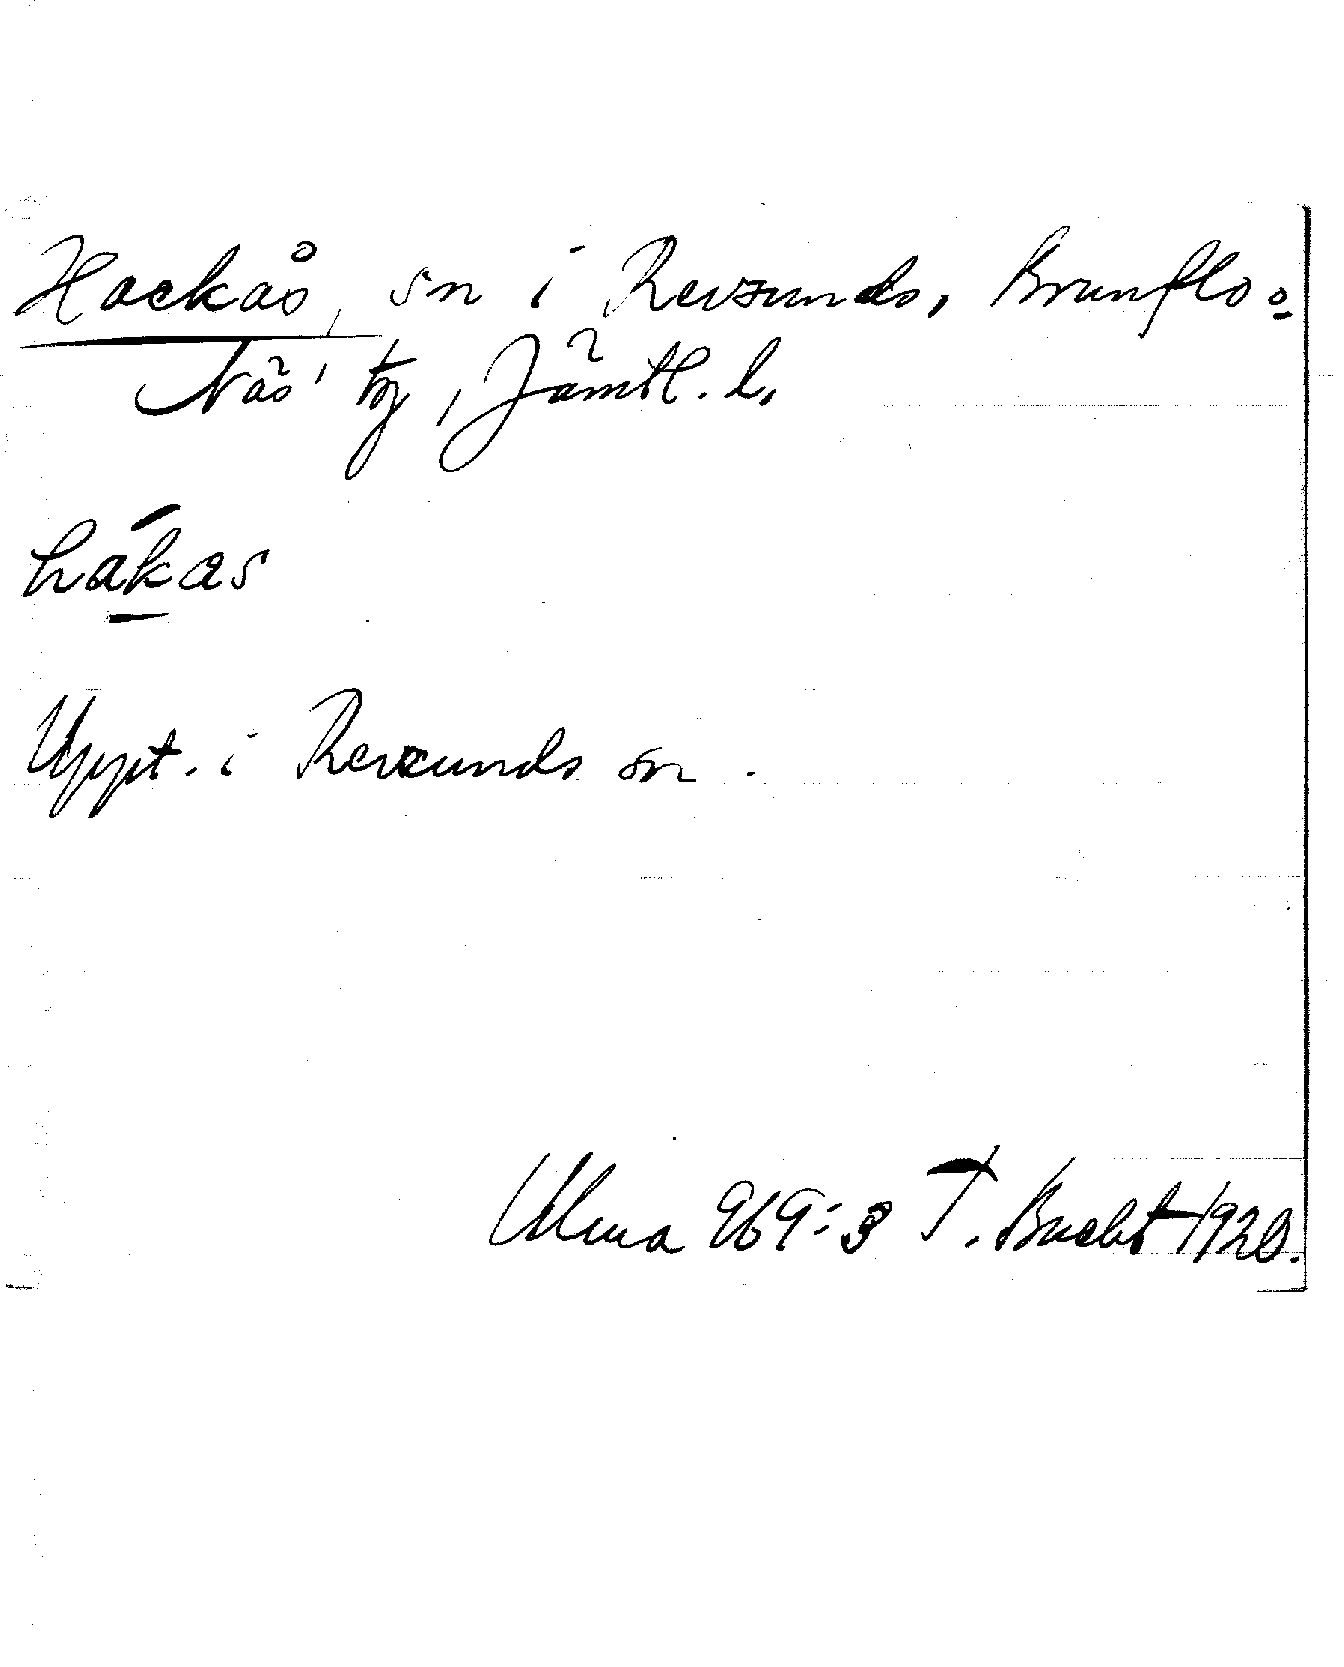 Hackås, sn i Revsunds, Brunflo o.
Näs' tg, Jämtl. l.
hákas
Uppt. i Revsunds sn.
Ulma 969:3 T. Bucht 1920.